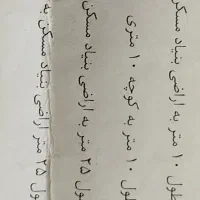 طول ۱۰ متر به اراضی بنیاد مسکن
طول ۱۰ متر به کوچه ۱۰ متری
طول ۲۵ متر به اراضی بنیاد مسکن
طول ۲۵ متر اراضی بنیاد مسکن به